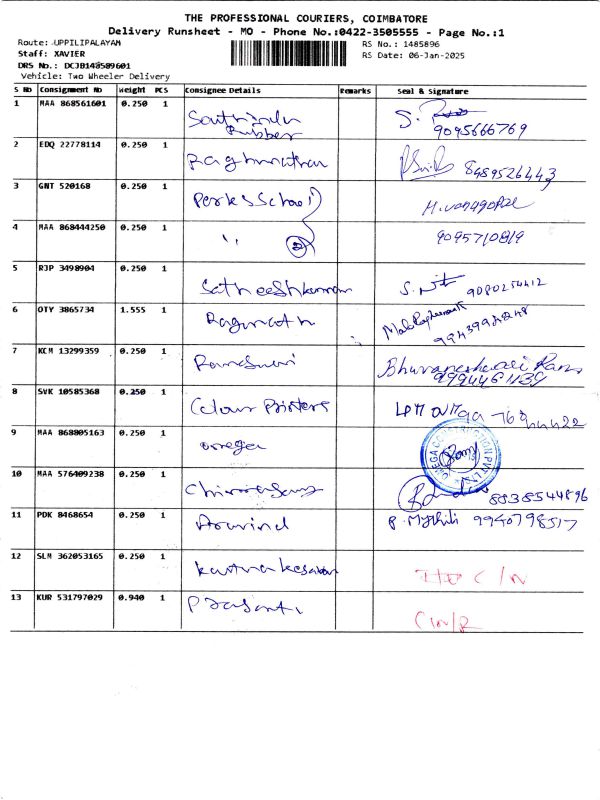 THE PROFESSIONAL COURIERS, COIMBATORE
Delivery Runsheet - MO - Phone No.:0422-3505555 - Page No.:1
Route: UPPILIPALAYAM RS No.: 1485896
Staff: XAVIER RS Date: 06-Jan-2025
DRS No.: DCJB148589601
Vehicle: Two Wheeler Delivery
S No Consignment No Weight PCS Consignee Details Remarks Seal & Signature
1 MAA 868561601 0.250 1 South India S.
Rubber 9095666769
2 EDQ 22778114 0.250 1 Ragunathan 8489526443
3 GNT 520168 0.250 1 Perks School H. vanagopal
4 MAA 868444250 0.250 1 " 2 9095710819
5 RJP 3498904 0.250 1 Satheeshkumar S. 9080254412
6 OTY 3865734 1.555 1 Ragunath
7 KCM 13299359 0.250 1 Bhuvaneshwari
8 SVK 10585368 0.250 1 Colour Printers
9 MAA 868805163 0.250 1 omega OMEGA CONSTRUCTION PVT. LTD.
10 MAA 576409238 0.250 1 8838544896
11 PDK 8468654 0.250 1 Aravind P. Mythili 9940798517
12 SLM 362053165 0.250 1 C/N
13 KUR 531797029 0.940 1 Prasanti